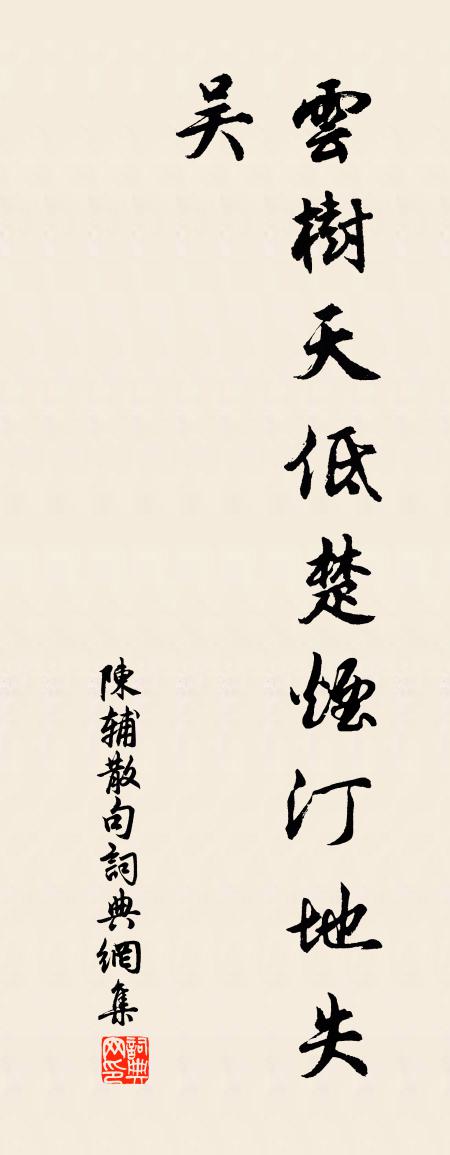 雲樹天低楚煙汀地失
吴
陳辅散句詞典網集
詞典网印